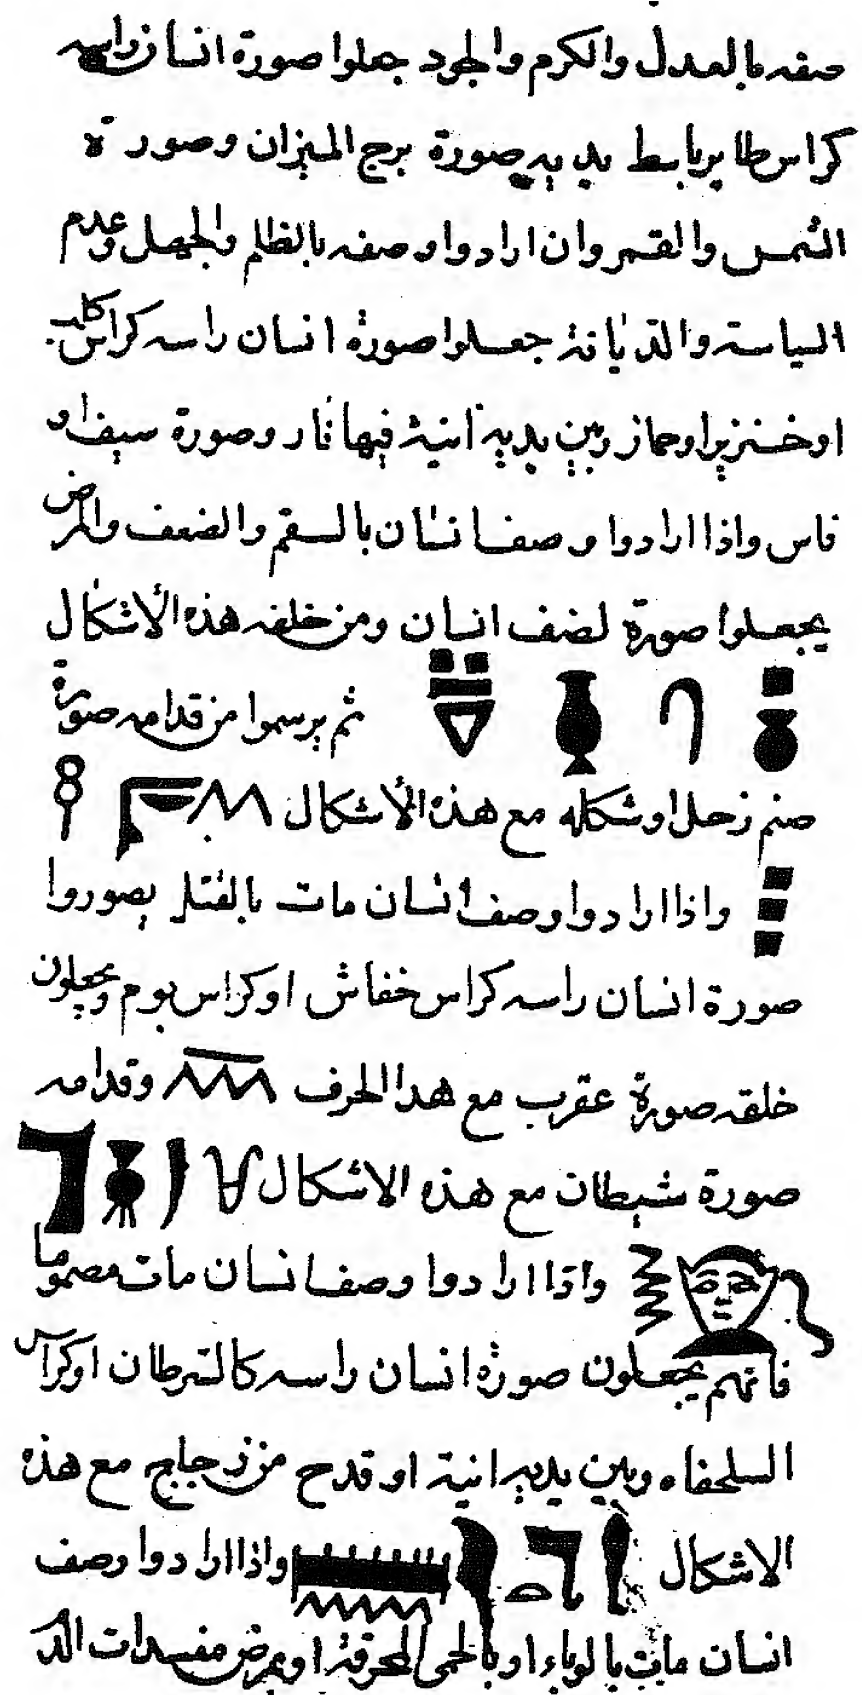 صفه بالعدل والكرم والجود جعلوا صورة انسان راسه
كراس طاير باسط يديه صورة برج الميزان وصورة
الشمس والقمر وان ارادوا وصفه بالظلم والجهل وعدم
السياسة والديانة جعلوا صورة انسان راسه كراس كلب
او خنزير او حمار وبين يديه انية فيها نار وصورة سيف او
فاس واذا ارادوا وصف انسان بالسقم والضعف والمرض
يجعلوا صورة لضف انسان ومن خلفه هذه الأشكال
ثم يرسموا من قدامه صورة
صنم زحل او شكله مع هذه الأشكال
واذا ارادوا وصف انسان مات بالقتل يصوروا
صورة انسان راسه كراس خفاش او كراس بوم ويجعلون
خلفه صورة عقرب مع هذا الحرف وقدامه
صورة شيطان مع هذه الاشكال
واذا ارادوا وصف انسان مات مصموما
فانهم يجعلون صورة انسان راسه كالسرطان او كراس
السلحفاه وبين يديه انية او قدح من زجاج مع هذه
الاشكال واذا ارادوا وصف
انسان مات بالوباء او بالحمى المحرقة او بمرض مفسدات الد